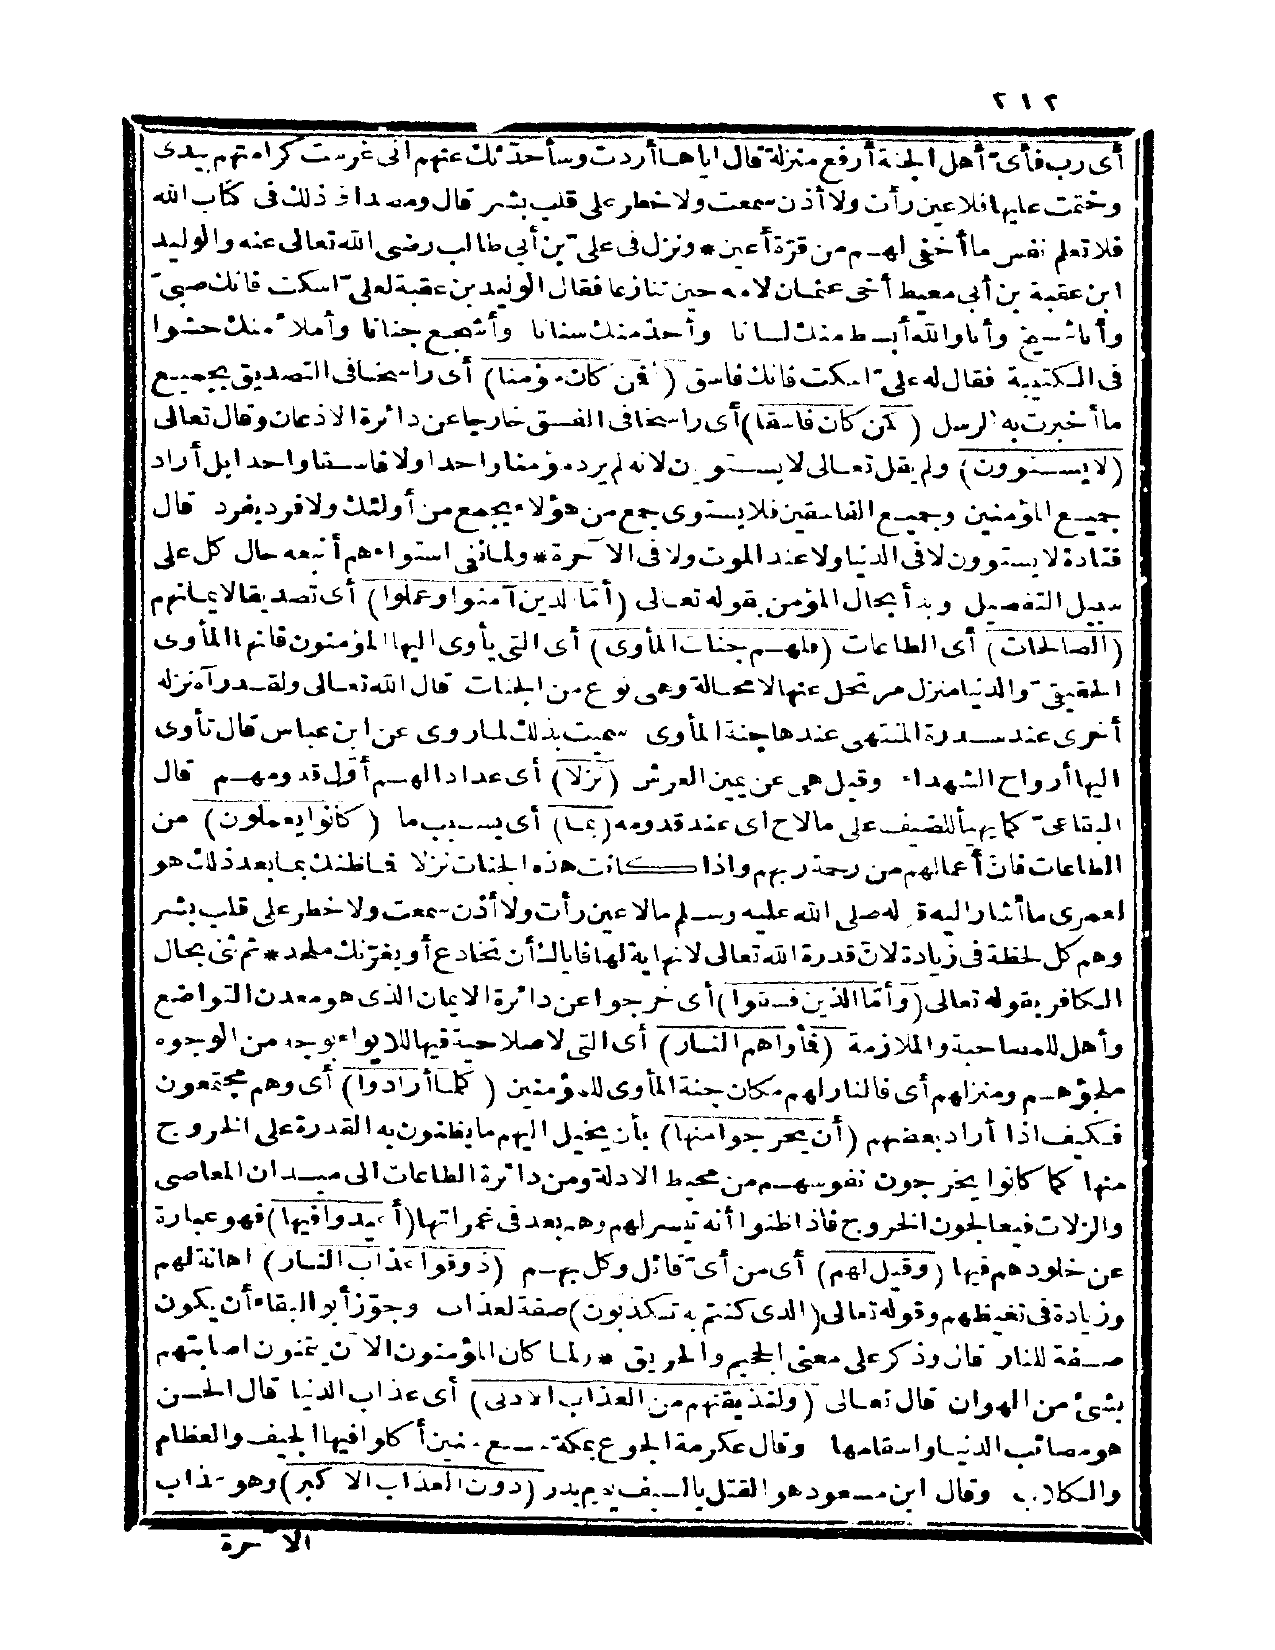 ٢١٢
أى رب فأىّ أهل الجنة أرفع منزلة قال اياها أردت وسأحدّثك عنهم انى غرست كرامتهم بيدى
وختمت عليها فلا عين رأت ولا أذن سمعت ولا خطر على قلب بشر قال ومصداق ذلك فى كتاب الله
فلا تعلم نفس ما أخفى لهم من قرّة أعين * ونزل فى علىّ بن أبي طالب رضى الله تعالى عنه والوليد
ابن عقبة بن أبى معيط أخى عثمان لامه حين تنازعا فقال الوليد بن عقبة لعلىّ اسكت فانك صبىّ
وأنا شيخ وأنا والله أبسط منك لسانا وأحدّ منك سنانا وأشجع جنانا وأملا ٔ منك حشوا
فى الكتيبة فقال له علىّ اسكت فانك فاسق (أفمن كان مؤمنا) أى راسخا فى التصديق بجميع
ما أخبرت به الرسل (كمن كان فاسقا) أى راسخا فى الفسق خارجا عن دائرة الاذعان وقال تعالى
(لا يستوون) ولم يقل تعالى لا يستويان لانه لم يرد مؤمنا واحدا ولا فاسقا واحدا بل أراد
جميع المؤمنين وجميع الفاسقين فلا يستوى جمع من هؤلاء بجمع من أولئك ولا فرد بفرد قال
قتادة لا يستوون لا فى الدنيا ولا عند الموت ولا فى الا ٓخرة * ولما نفى استواءهم أتبعه حال كل على
سبيل التفصيل وبدأ بحال المؤمن بقوله تعالى (أمّا الذين آمنوا وعملوا) أى تصديقا لايمانهم
(الصالحات) أى الطاعات (فلهم جنات المأوى) أى التى يأوى اليها المؤمنون فانها المأوى
الحقيقىّ والدنيا منزل مرتحل عنها لا محالة وهى نوع من الجنات قال الله تعالى ولقد رآه نزلة
أخرى عند سدرة المنتهى عندها جنة المأوى سميت بذلك لما روى عن ابن عباس قال تأوى
اليها أرواح الشهداء وقيل هى عن يمين العرش (نزلا) أى عدادا لهم أوّل قدومهم قال
البقاعىّ كما يهيأ للضيف على ما لاح اى عند قدومه (بما) أى بسبب ما (كانوا يعملون) من
الطاعات فانّ أعمالهم من رحمة ربهم واذا كانت هذه الجنات نزلا فما ظنك بما بعد ذلك هو
لعمرى ما أشار اليه قوله صلى الله عليه وسلم ما لا عين رأت ولا أذن سمعت ولا خطر على قلب بشر
وهم كل لحظة فى زيادة لانّ قدرة الله تعالى لا نهاية لها فاياك أن تخادع أو يغرّنك ملحد * ثم ثنى بحال
الكافر بقوله تعالى (وأمّا الذين فسقوا) أى خرجوا عن دائرة الايمان الذى هو معدن التواضع
وأهل للمصاحبة والملازمة (فأواهم النار) أى التى لا صلاحية فيها للايواء بوجه من الوجوه
ملجؤهم ومنزلهم أى فالنار لهم مكان جنة المأوى للمؤمنين (كلما أرادوا) أى وهم مجتمعون
فكيف اذا أراد بعضهم (أن يخرجوا منها) بأن يخيل اليهم ما يظنون به القدرة على الخروج
منها كما كانوا يخرجون نفوسهم من محيط الادلة ومن دائرة الطاعات الى ميدان المعاصى
والزلات فيعالجون الخروج فاذا ظنوا أنه تيسر لهم وهم بعد فى غمراتها (أعيدوا فيها) فهو عبارة
عن خلودهم فيها (وقيل لهم) أى من أىّ قائل وكل بهم (ذوقوا عذاب النار) اهانة لهم
وزيادة فى تغيظهم وقوله تعالى (الذى كنتم به تكذبون) صفة لعذاب وجوّز أبو البقاء أن يكون
صفة للنار قال وذكر على معنى الجحيم والحريق * ولما كان المؤمنون الا ٓن يتمنون اصابتهم
بشئ من الهوان قال تعالى (ولنذيقنهم من العذاب الادنى) أى عذاب الدنيا قال الحسن
هو مصائب الدنيا واسقامها وقال عكرمة الجوع بمكة سبع سنين أكلوا فيها الجيف والعظام
والكلاب وقال ابن مسعود هو القتل بالسيف يوم بدر (دون العذاب الاكبر) وهو عذاب
الا ٓخرة